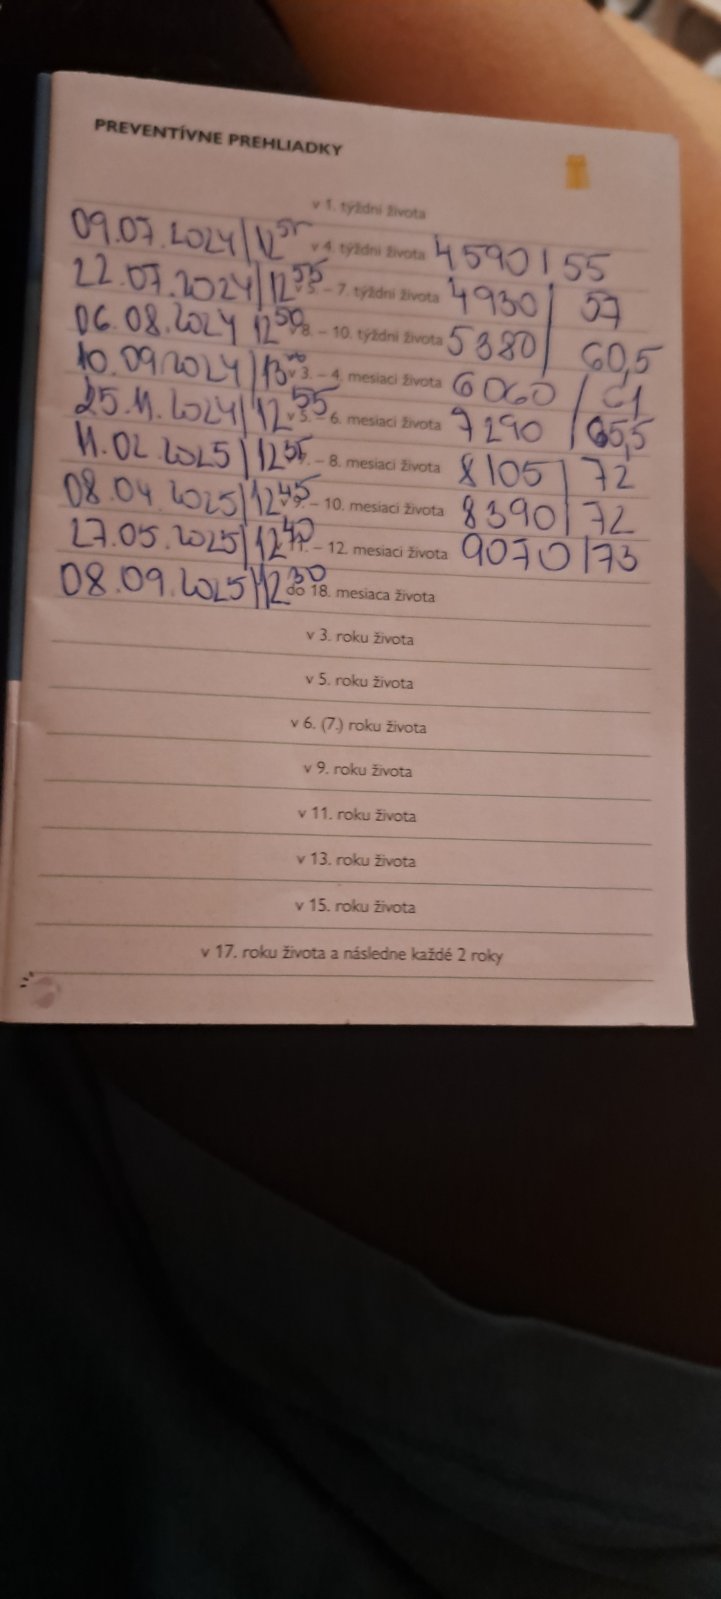 PREVENTÍVNE PREHLIADKY
v 1. týždni života
09.07.2024 | 12⁵⁵ v 4. týždni života 4590 | 55
22.07.2024 | 12⁵⁵ v 5. – 7. týždni života 4930 | 57
06.08.2024 12⁵⁰ v 8. – 10. týždni života 5380 | 60,5
10.09.2024 | 13⁰⁰ v 3. – 4. mesiaci života 6060 | 61
25.11.2024 | 12⁵⁵ v 5. – 6. mesiaci života 7290 | 65,5
11.02.2025 | 12⁵⁵ – 8. mesiaci života 8105 | 72
08.04.2025 | 12⁴⁵ v 9. – 10. mesiaci života 8390 | 72
27.05.2025 | 12⁴⁰ 11. – 12. mesiaci života 9070 | 73
08.09.2025 | 12³⁰ do 18. mesiaca života
v 3. roku života
v 5. roku života
v 6. (7.) roku života
v 9. roku života
v 11. roku života
v 13. roku života
v 15. roku života
v 17. roku života a následne každé 2 roky